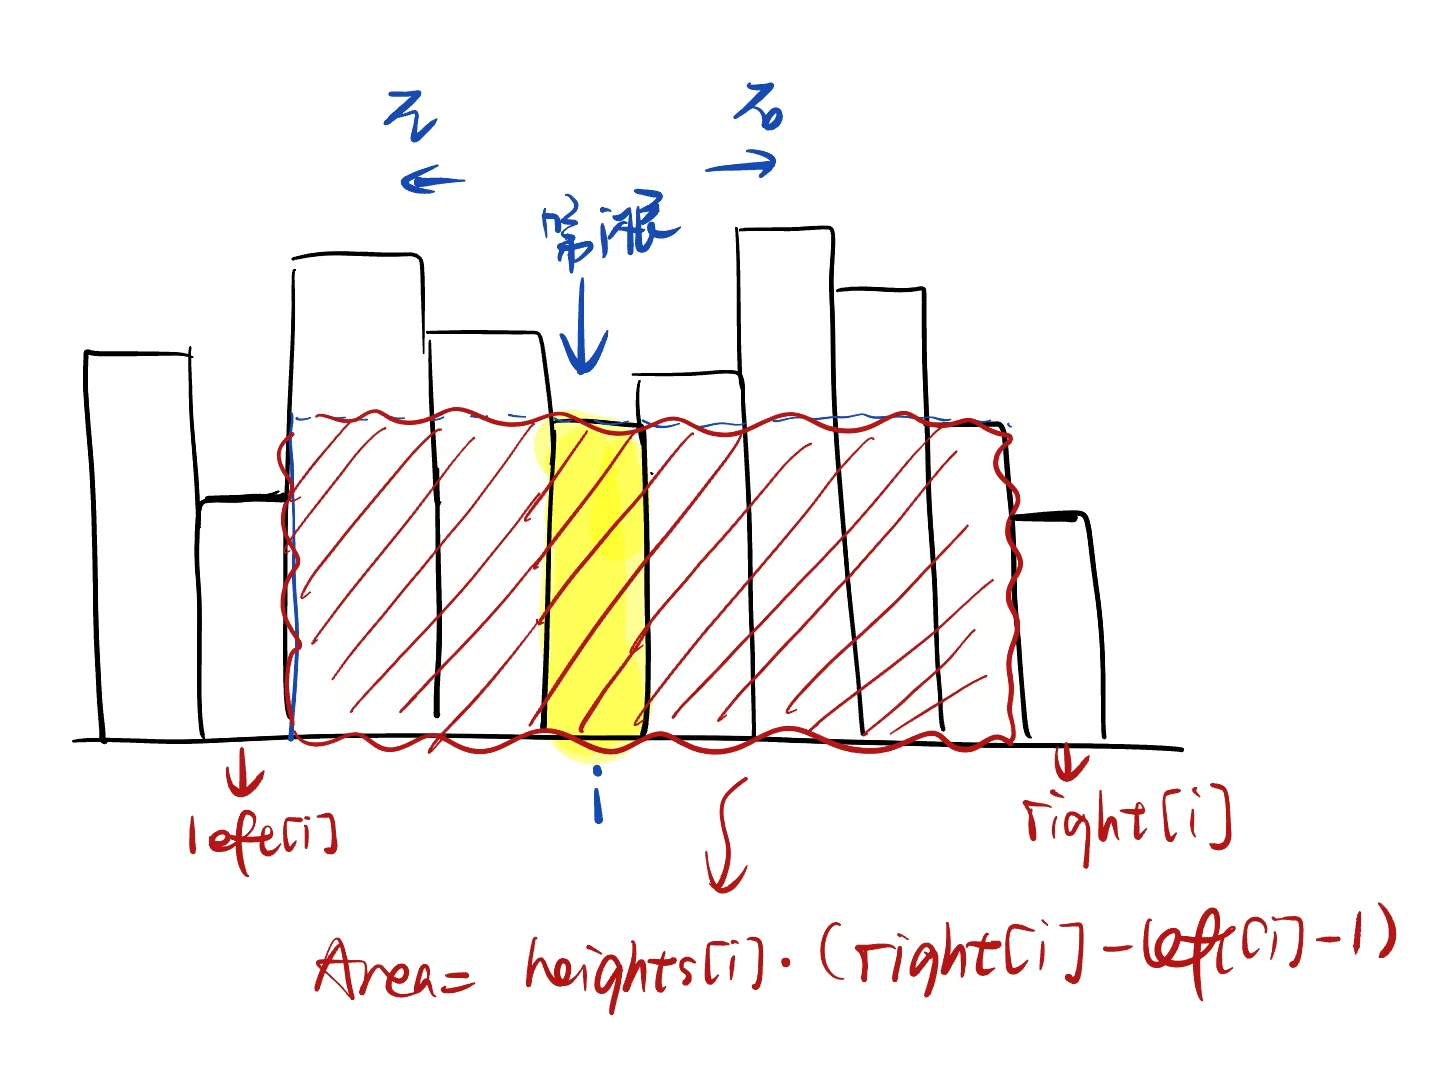 左 右
i
left[i] right[i]
Area= heights[i]·(right[i]-left[i]-1)